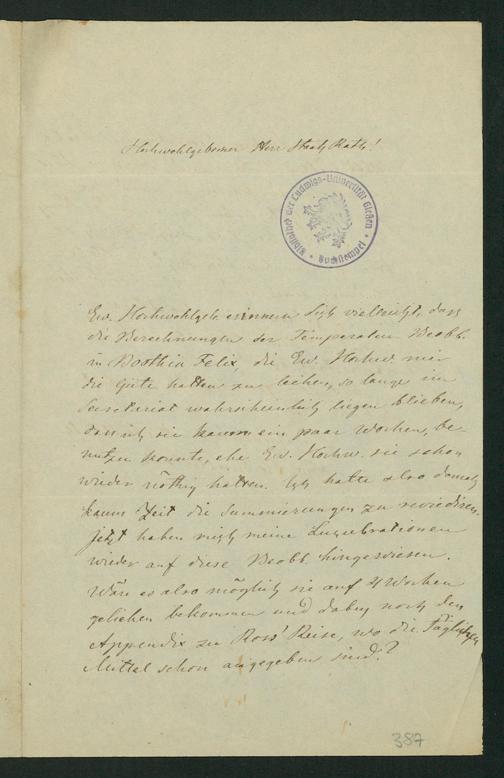 Hochwohlgeborner Herr Staats Rath!
Bibliothek der Ludwigs-Universität Gießen
Buchstempel
Ew. Hochwohlgeb. erinnern sich vielleicht, dass
die Berechnungen der Temperatur Beobb.
in Boothia Felix, die Ew. Hochw. mir
die Güte hatten zu leihen, so lange im
Secretariat wahrscheinlich liegen blieben,
dass ich sie kaum ein paar Wochen, be-
nutzen konnte, ehe Ew. Hochw. sie schon
wieder nöthig hatten. Ich hatte also damals
kaum Zeit die Summierungen zu revidiren.
Jetzt haben mich meine Lucubrationen
wieder auf diese Beobb. hingewiesen.
Wäre es also möglich sie auf 4 Wochen
geliehen bekommen und dabey noch den
Appendix zu Ross' Reise, wo die Täglichen
Mittel schon angegeben sind?
387